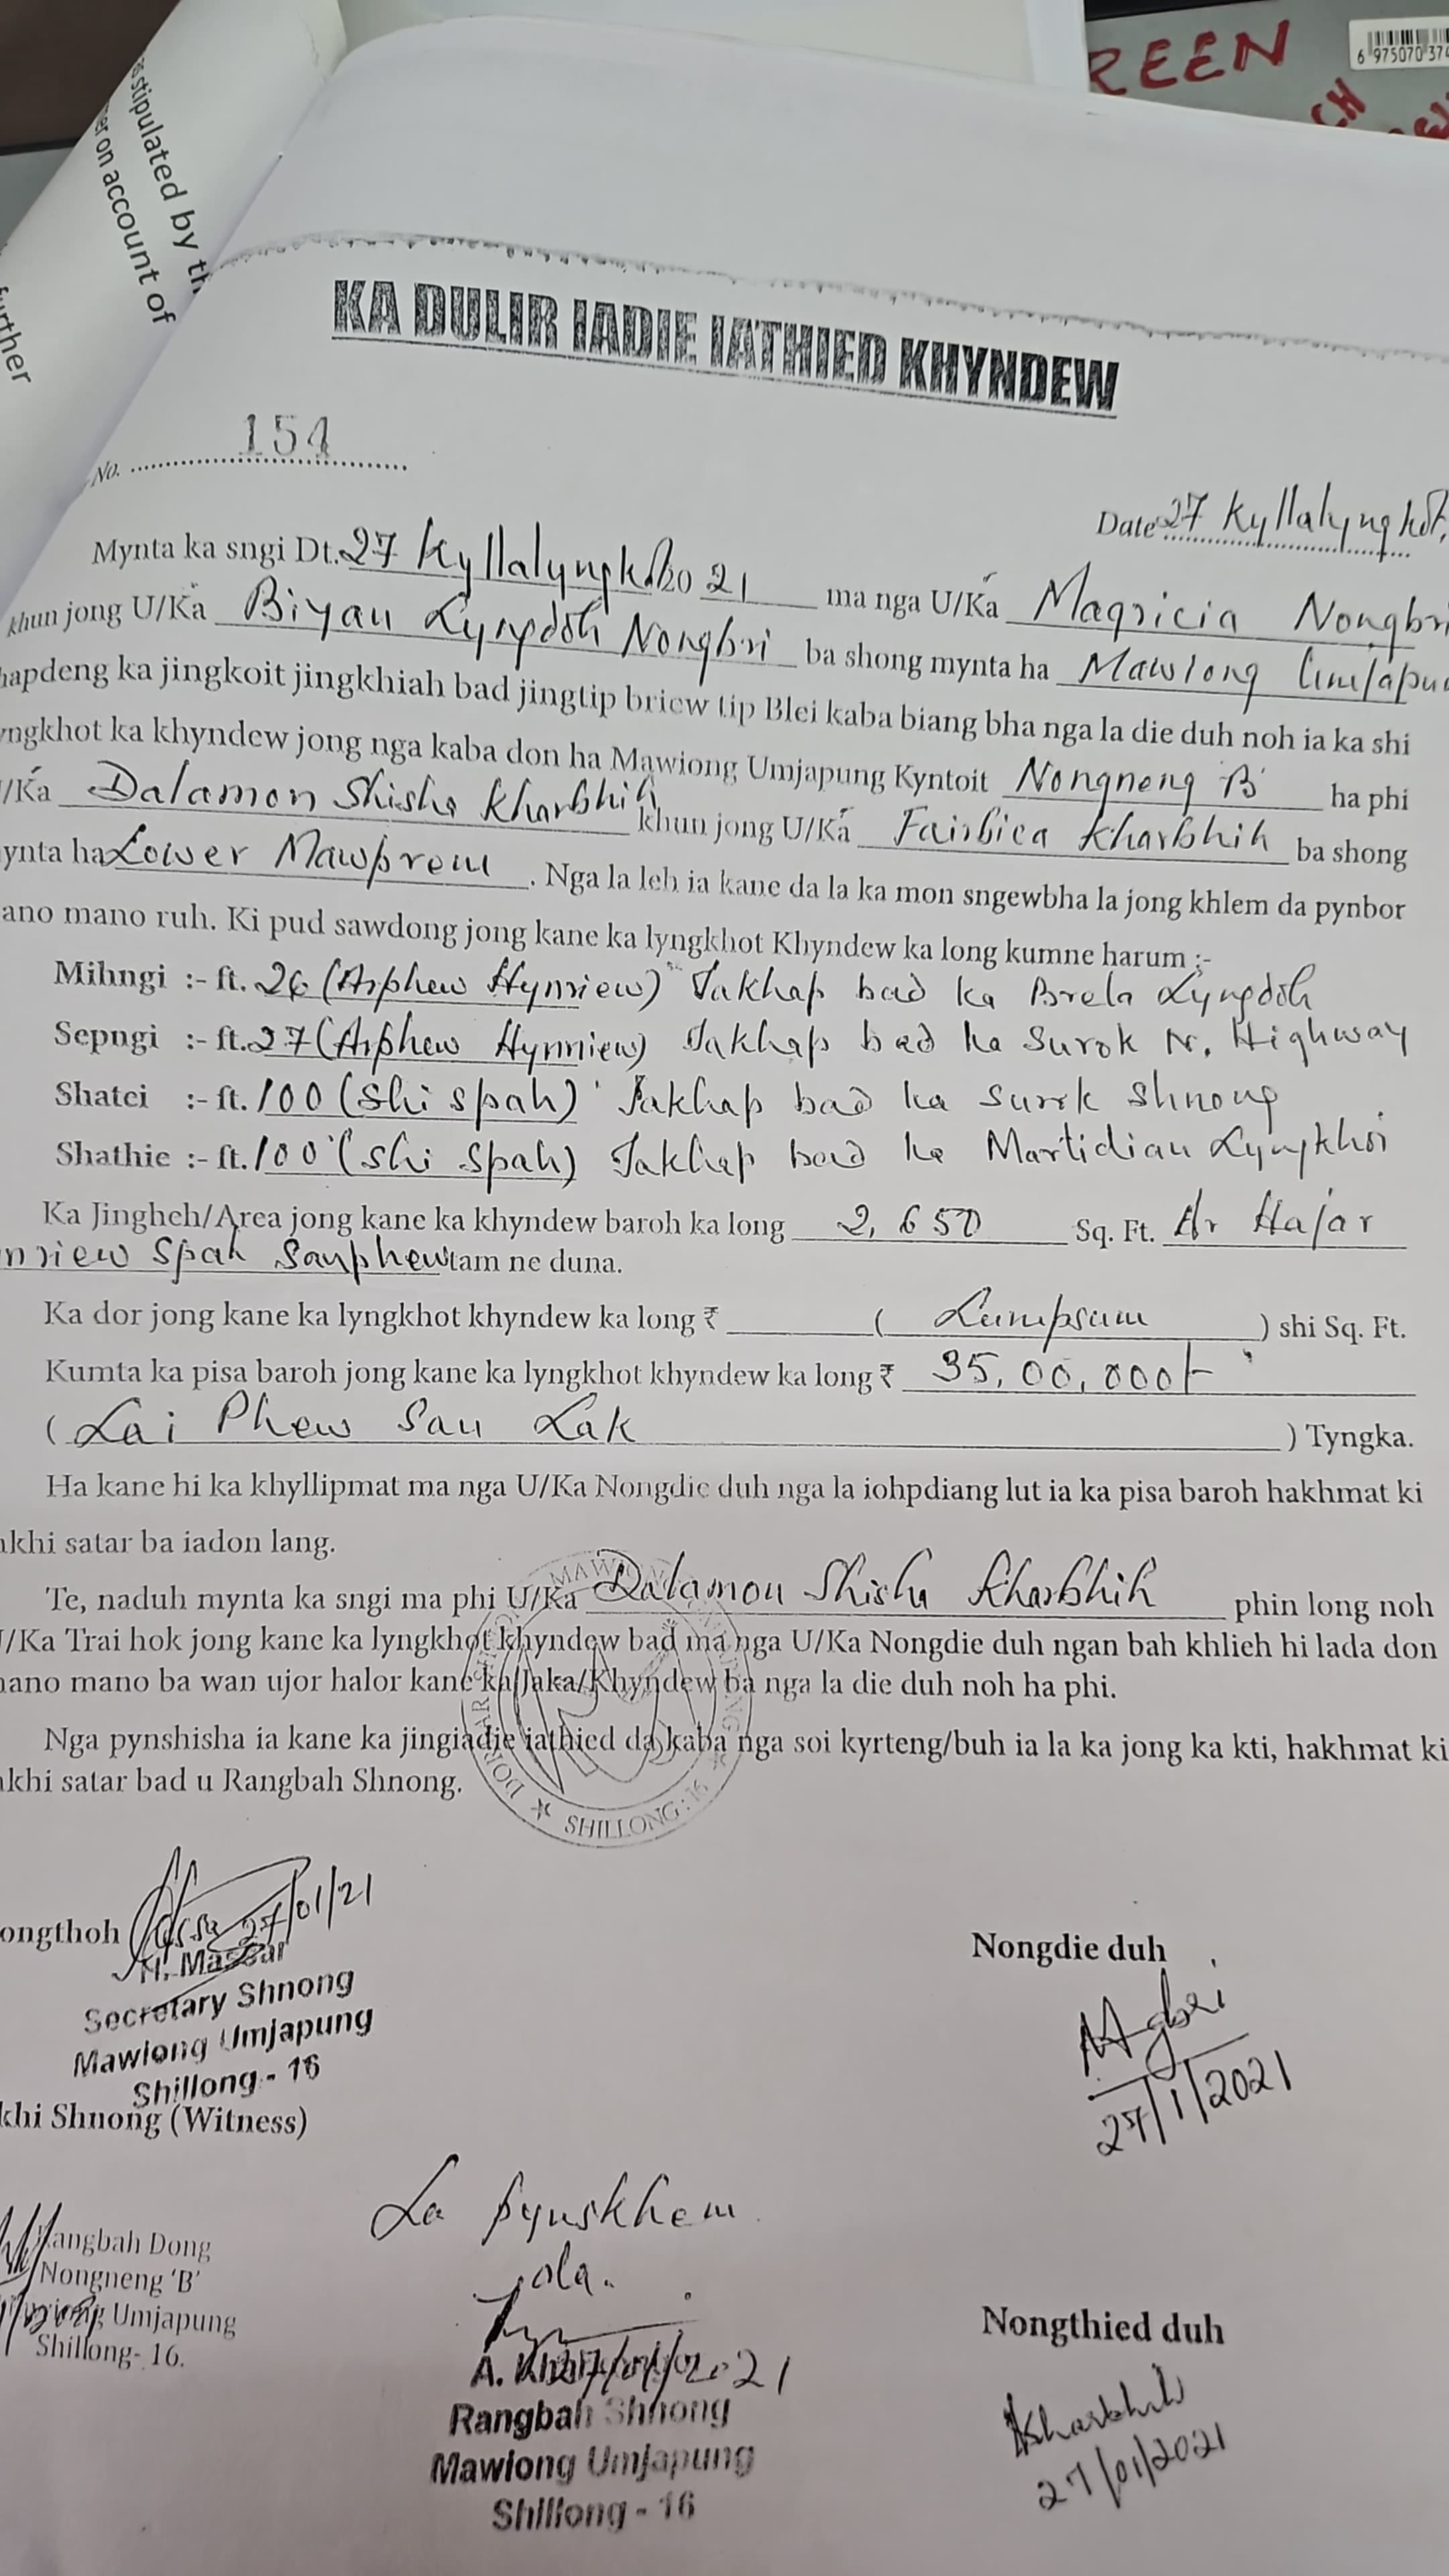 stipulated by th
on account of
further
REEN
6 975070 374
CH
KA DULIR IADIE IATHIED KHYNDEW
No. 154
Date 27 Kyllalyngkot,
Mynta ka sngi Dt. 27 Kyllalyngkot 20 21 ma nga U/Ka Magricia Nongbri
khun jong U/Ka Biyan Lyngdoh Nongbri ba shong mynta ha Mawiong Umjapun
hapdeng ka jingkoit jingkhiah bad jingtip briew tip Blei kaba biang bha nga la die duh noh ia ka shi
yngkhot ka khyndew jong nga kaba don ha Mawiong Umjapung Kyntoit Nongneng 'B' ha phi
/Ka Dalamon Shisha Kharbhih khun jong U/Ka Fairbica Kharbhih ba shong
ynta ha Lower Mawprem. Nga la leh ia kane da la ka mon sngewbha la jong khlem da pynbor
ano mano ruh. Ki pud sawdong jong kane ka lyngkhot Khyndew ka long kumne harum ;-
Mihngi :- ft. 26 (Arphew Hynriew) Iakhap bad ka Brela Lyngdoh
Sepngi :- ft. 27 (Arphew Hynniew) Iakhap bad ka Surok N. Highway
Shatei :- ft. 100 (Shi spah) Iakhap bad ka surok shnong
Shathie :- ft. 100 (shi spah) Iakhap bad ka Martidian Lyngkhoi
Ka Jingheh/Area jong kane ka khyndew baroh ka long 2,650 Sq. Ft. Ar Hajar
nriew Spah Sanphew tam ne duna.
Ka dor jong kane ka lyngkhot khyndew ka long ₹ ( Lumpsum ) shi Sq. Ft.
Kumta ka pisa baroh jong kane ka lyngkhot khyndew ka long ₹ 35,00,000/-
( Lai Phew San Lak ) Tyngka.
Ha kane hi ka khyllipmat ma nga U/Ka Nongdie duh nga la iohpdiang lut ia ka pisa baroh hakhmat ki
akhi satar ba iadon lang.
Te, naduh mynta ka sngi ma phi U/Ka Dalamon Shisha Kharbhih phin long noh
U/Ka Trai hok jong kane ka lyngkhot khyndew bad ma nga U/Ka Nongdie duh ngan bah khlieh hi lada don
mano mano ba wan ujor halor kane ka Jaka/Khyndew ba nga la die duh noh ha phi.
Nga pynshisha ia kane ka jingiadie iathied da kaba nga soi kyrteng/buh ia la ka jong ka kti, hakhmat ki
akhi satar bad u Rangbah Shnong.
SHILLONG : 16
ongthoh 27/01/21
H. Massar
Secretary Shnong
Mawiong Umjapung
Shillong - 16
Nongdie duh
Nongbri
27/1/2021
khi Shnong (Witness)
La pynskhem
ola.
Rangbah Dong
Nongneng 'B'
Umjapung
Shillong- 16.
A. 27/01/2021
Rangbah Shnong
Mawiong Umjapung
Shillong - 16
Nongthied duh
Kharbhih
27/01/2021